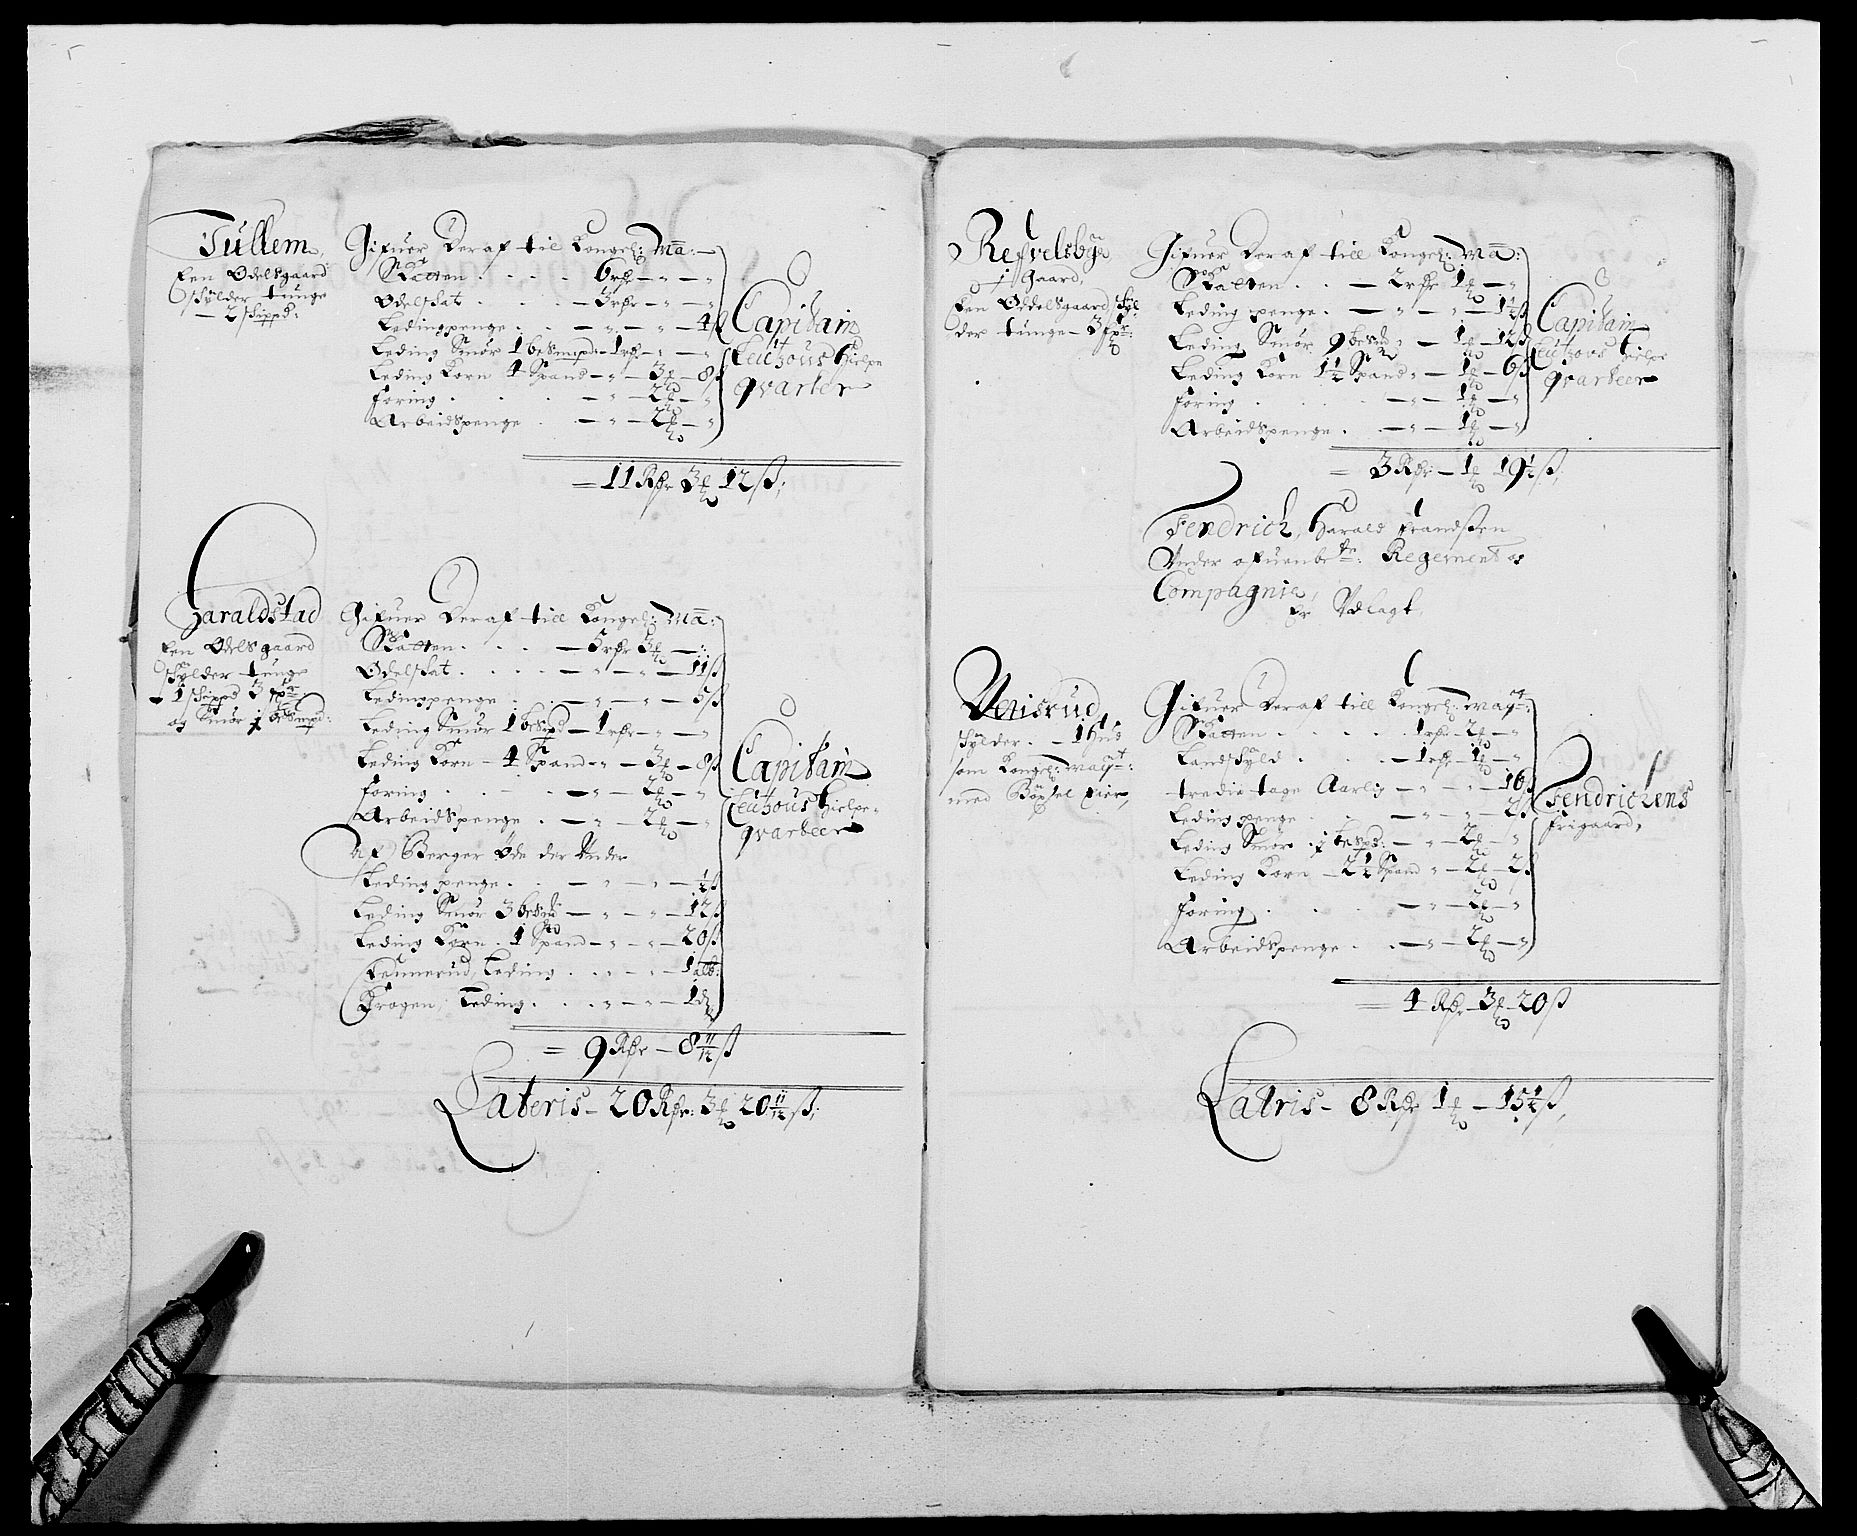 Tullem,
Een Ødelsgaard
skylder tunge
— 2 skippd:
Gifuer Deraf till Kongel: Ma:
Skatten . . . . 6 rdr — " — "
Ødelskat . . . . 3 rdr — " — "
Ledingpenge . . — " — " — 4 ß
Leding Smør 1 besmepd: — 1 rdr — " — "
Leding Korn 4 Spand — " — 3 — 8 ß
Foring . . . . — " — 2 — "
Arbeidspenge . — " — 2 — "
Capitain
Leutzous Hielpe
qvarter
= 11 Rdr 3 12 ß;
Haraldstad
Een Ødelsgaard
skylder tunge
— 1 skippd 3
og Smør j besmepd:
Gifuer Deraf till Kongel: Ma:
Skatten . . . — 5 rdr 3 — "
Ødelskat . . . . — " — " — 11 ß
Ledingpenge . . — " — " — 5 ß
Leding Smør 1 besmpd — 1 rdr — " — "
Leding Korn — 4 Spand — " — 3 — 8 ß
Foring . . . . — " — 2 — "
Arbeidspenge . — " — 2 — "
Af Berger Øde der Under
Leding penge . . — " — " —
Leding Smør 3 — " — " — 12 ß
Leding Korn . 1 Spand — " — " — 20 ß
Leding . . . " — 1 alb:
Krogen, Leding . . . " — " — 1 d
Capitain
Leutzous Hielpe-
qvarteer
= 9 Rdr — 8 11/12 ß
Lateris — 20 Rdr: 3 20 11/12 ß:
Refvelsbye
j Gaard,
Een Øddelsgaard skyl
der tunge — 3
Gifuer Deraf till Kongel: Ma:
Skatten . . — 2 rdr 1 — "
Leding penge . — " — " — 1½ ß
Leding Smør 9 " — 1 — 12 ß
Leding Korn 1½ Spand " — 1 — 6 ß
Foring . . . . — " — 1 — "
Arbeidspenge . — " — 1 — "
Capitain
Leutzous Hielpe
qvarteer
= 3 Rdr — 1 19½ ß;
Fendrich, Harald Frandsten
Under ofuenbete: Regement og
Compagnie,
Er Udlagt,
skylder . — 1 Hud
som Kongel: Mayt:
med Bøxel Eier,
Gifuer Deraf till Kongel: Mayt:
Skatten . . . . . 1 rdr 2 — "
Landskyld . . . — 1 rdr 1 — "
tredie tage Aarlig — " — " — 16 ß
Leding penge . . — " — " — 2 ß
Leding Smør . j — " — 2 — "
Leding Korn — 2½ Spand " — 2 — 2 ß
Foring . . . — " — 2 — "
Arbeidspenge . . — " — 2 — "
Fendrichens
frigaard,
= 4 Rdr — 3 — 20 ß
Latris — 8 Rdr 1 — 15½ ß,